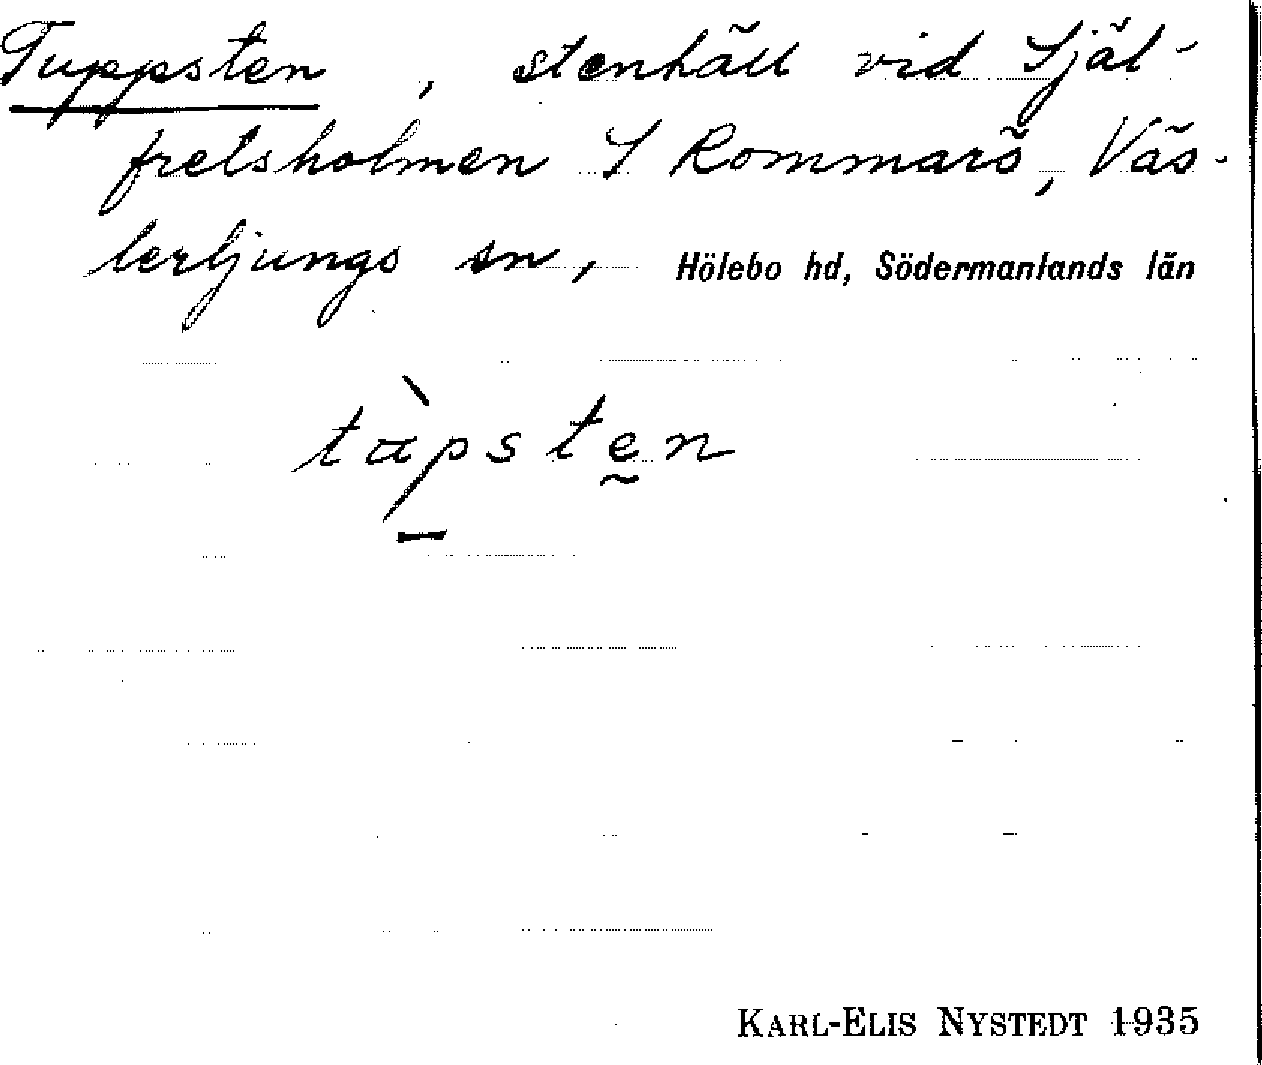 Tuppsten, stenhäll vid Själ-
fretsholmen S Rommarö, Väs-
terljungs sn, Hölebo hd, Södermanlands län
tàpsten
KARL-ELIS NYSTEDT 1935